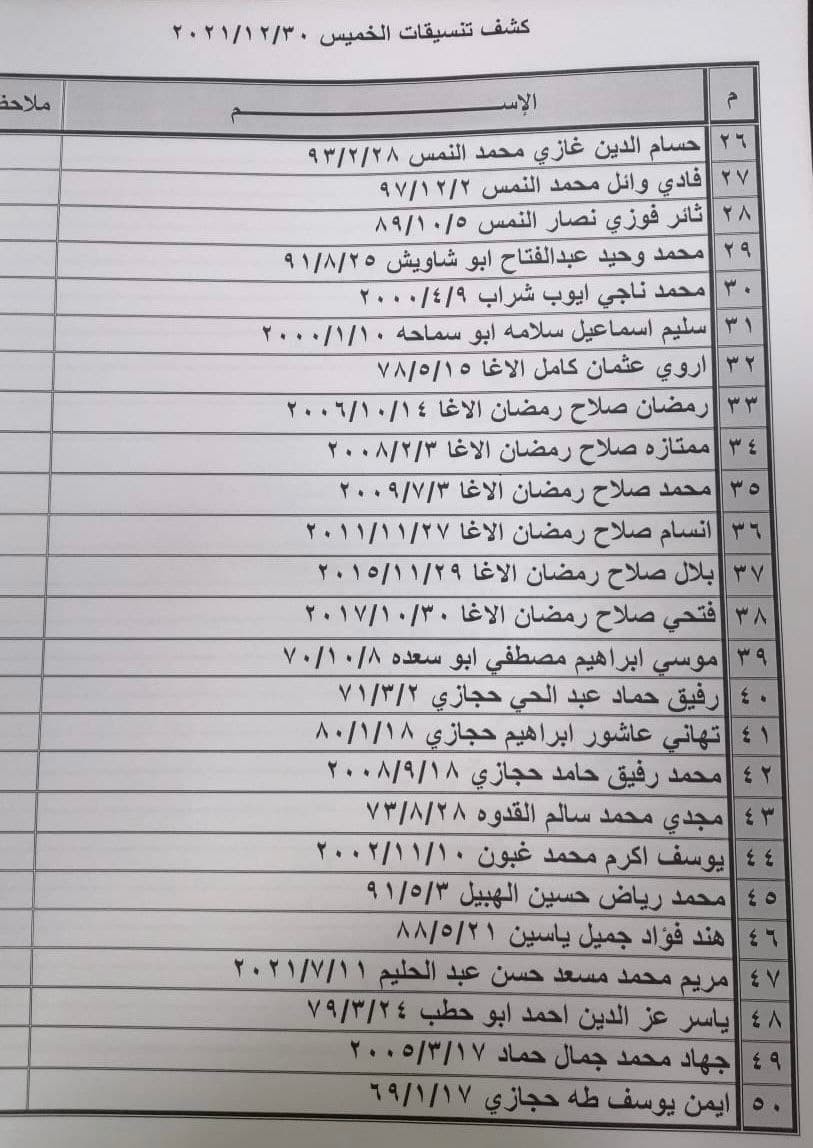 كشف تنسيقات الخميس ٢٠٢١/١٢/٣٠
م الإســـــم ملاحظ
٢٦ حسام الدين غازي محمد النمس ٩٣/٢/٢٨
٢٧ فادي وائل محمد النمس ٩٧/١٢/٢
٢٨ ثائر فوزي نصار النمس ٨٩/١٠/٥
٢٩ محمد وحيد عبدالفتاح ابو شاويش ٩١/٨/٢٥
٣٠ محمد ناجي ايوب شراب ٢٠٠٠/٤/٩
٣١ سليم اسماعيل سلامه ابو سماحه ٢٠٠٠/١/١٠
٣٢ اروي عثمان كامل الاغا ٧٨/٥/١٥
٣٣ رمضان صلاح رمضان الاغا ٢٠٠٦/١٠/١٤
٣٤ ممتازه صلاح رمضان الاغا ٢٠٠٨/٢/٣
٣٥ محمد صلاح رمضان الاغا ٢٠٠٩/٧/٣
٣٦ انسام صلاح رمضان الاغا ٢٠١١/١١/٢٧
٣٧ بلال صلاح رمضان الاغا ٢٠١٥/١١/٢٩
٣٨ فتحي صلاح رمضان الاغا ٢٠١٧/١٠/٣٠
٣٩ موسي ابراهيم مصطفي ابو سعده ٧٠/١٠/٨
٤٠ رفيق حماد عبد الحي حجازي ٧١/٣/٢
٤١ تهاني عاشور ابراهيم حجازي ٨٠/١/١٨
٤٢ محمد رفيق حامد حجازي ٢٠٠٨/٩/١٨
٤٣ مجدي محمد سالم القدوه ٧٣/٨/٢٨
٤٤ يوسف اكرم محمد غبون ٢٠٠٢/١١/١٠
٤٥ محمد رياض حسين الهبيل ٩١/٥/٣
٤٦ هند فؤاد جميل ياسين ٨٨/٥/٢١
٤٧ مريم محمد مسعد حسن عبد الحليم ٢٠٢١/٧/١١
٤٨ ياسر عز الدين احمد ابو حطب ٧٩/٣/٢٤
٤٩ جهاد محمد جمال حماد ٢٠٠٥/٣/١٧
٥٠ ايمن يوسف طه حجازي ٦٩/١/١٧